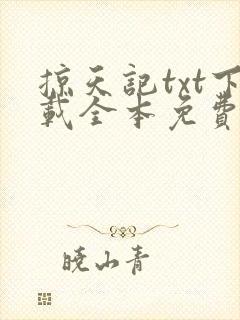 掠天記txt下
載全本免費
曉山青